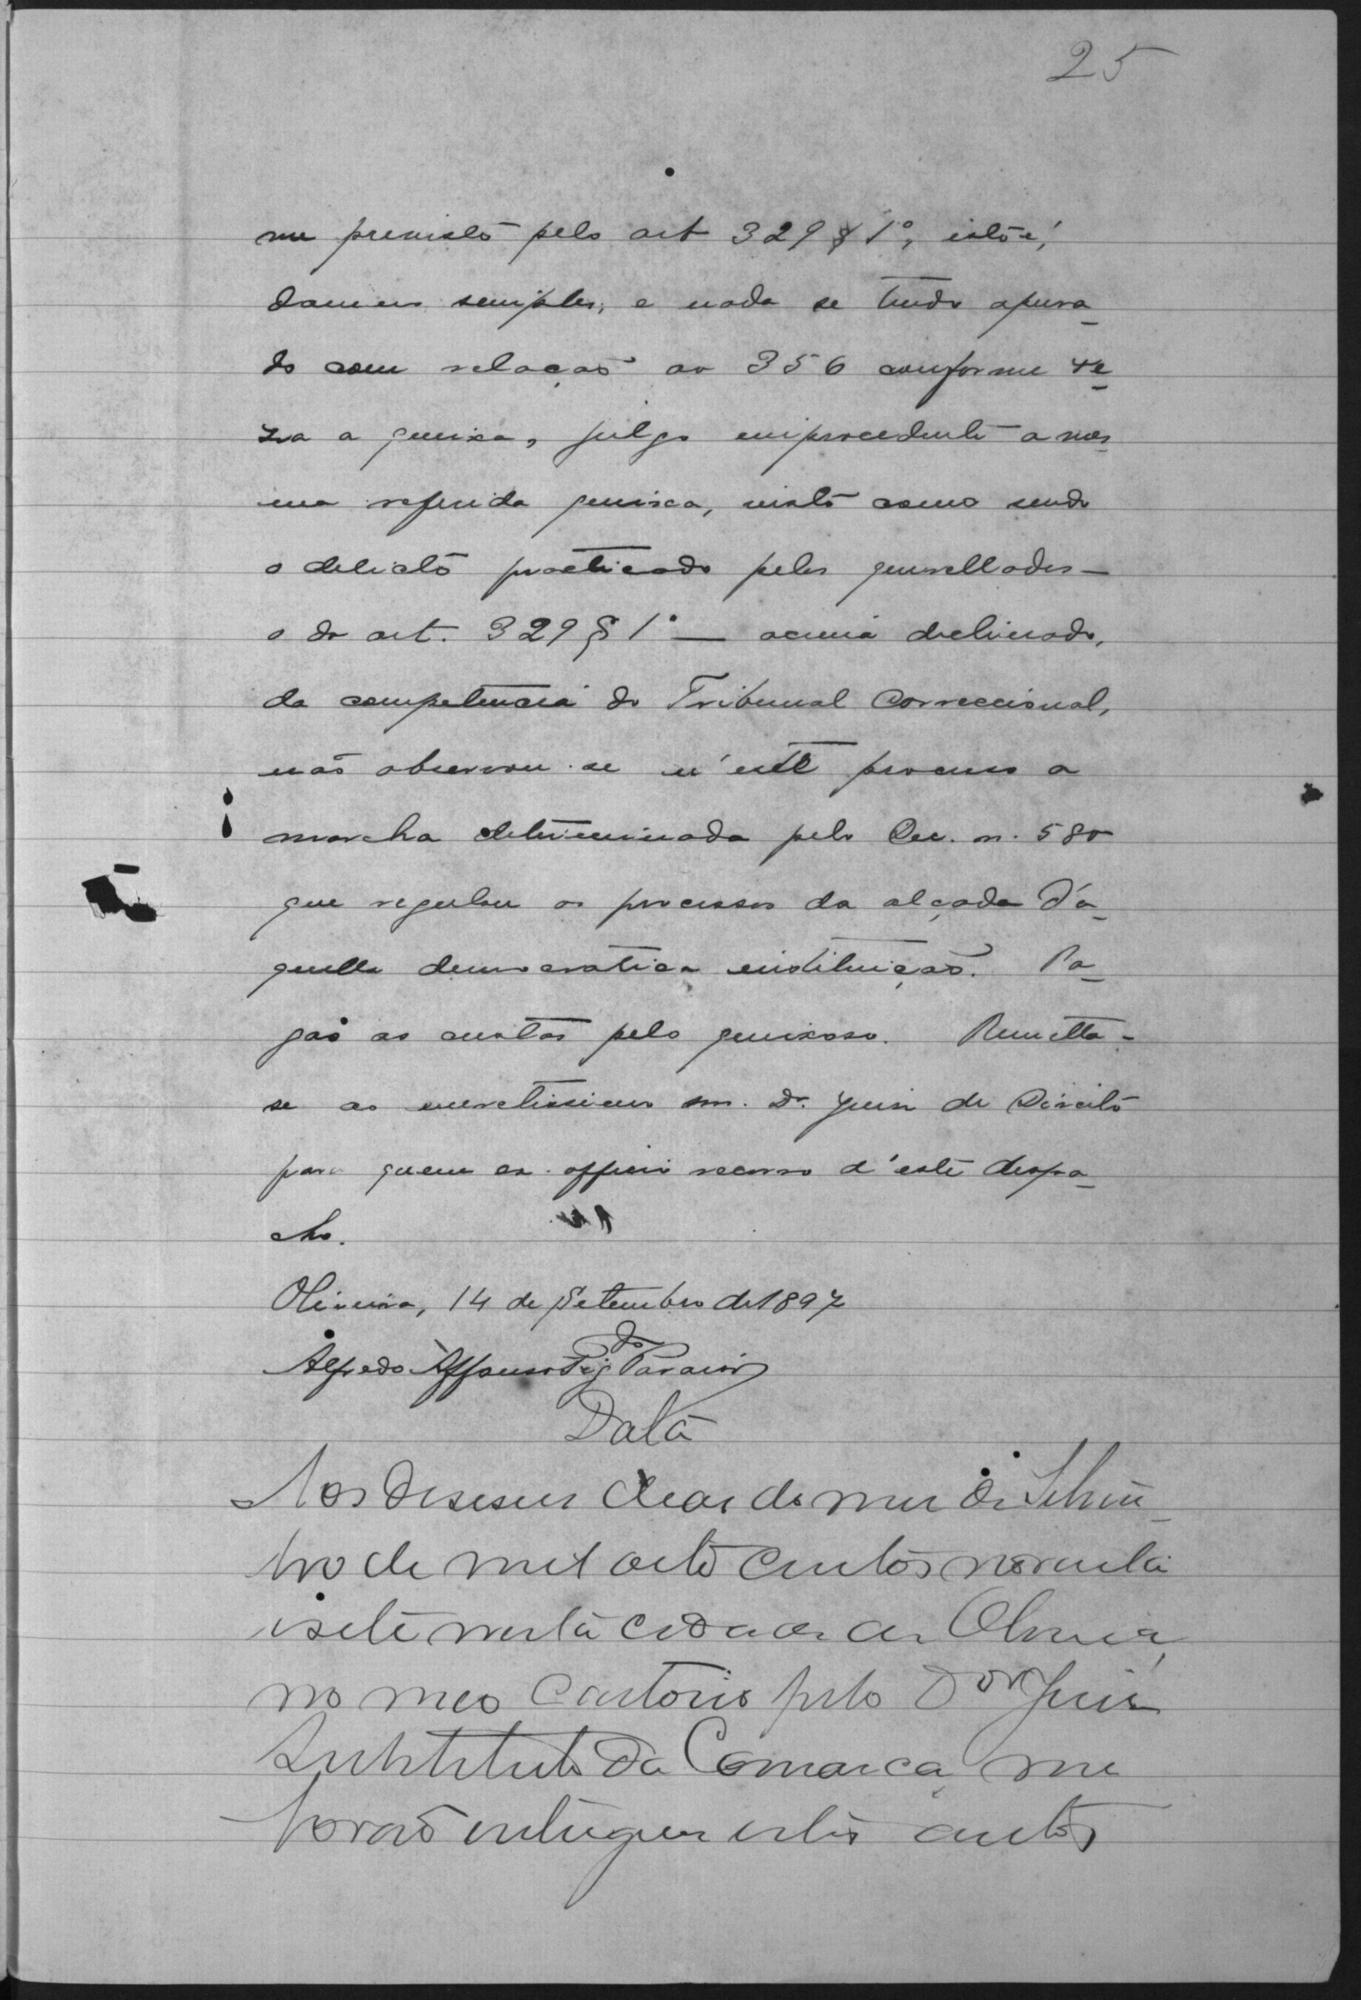 25
me previsto pelo art 329 § 1º, isto é,
damno simples, e nada se tendo apura-
do com relação ao 356 conforme re-
za a queixa, julgo improcedente a mes-
ma referida queixa, visto como sendo
o delicto practicado pelos querellados—
o do art. 329 § 1º — acima declinado,
da competencia do Tribunal Correccional,
não observou-se n'este processo a
marcha determinada pelo Dec. n. 580
que regulou os processos da alçada d'a-
quella democratica instituição. Pa-
gas as custas pelo queixoso. Remetta-
se ao meretissimo snr. Dr. Juiz de Direito
para quem ex-officio recorro d'este despa-
cho.
Oliveira, 14 de Setembro de 1897
Alfredo Affonso do
Data
Aos deseseis dias do mes de Setem-
bro de mil oito centos noventa
i sete nesta cidade de Oliveira,
no meo Cartorio pelo Dor Juis
Substituto da Comarca, me
forão entregues estes autos